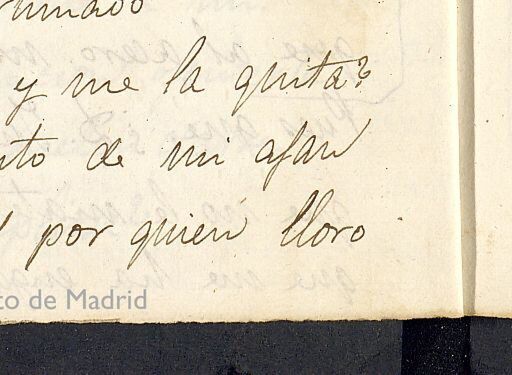 y me la quita?
de mi afan
por quien lloro
to de Madrid